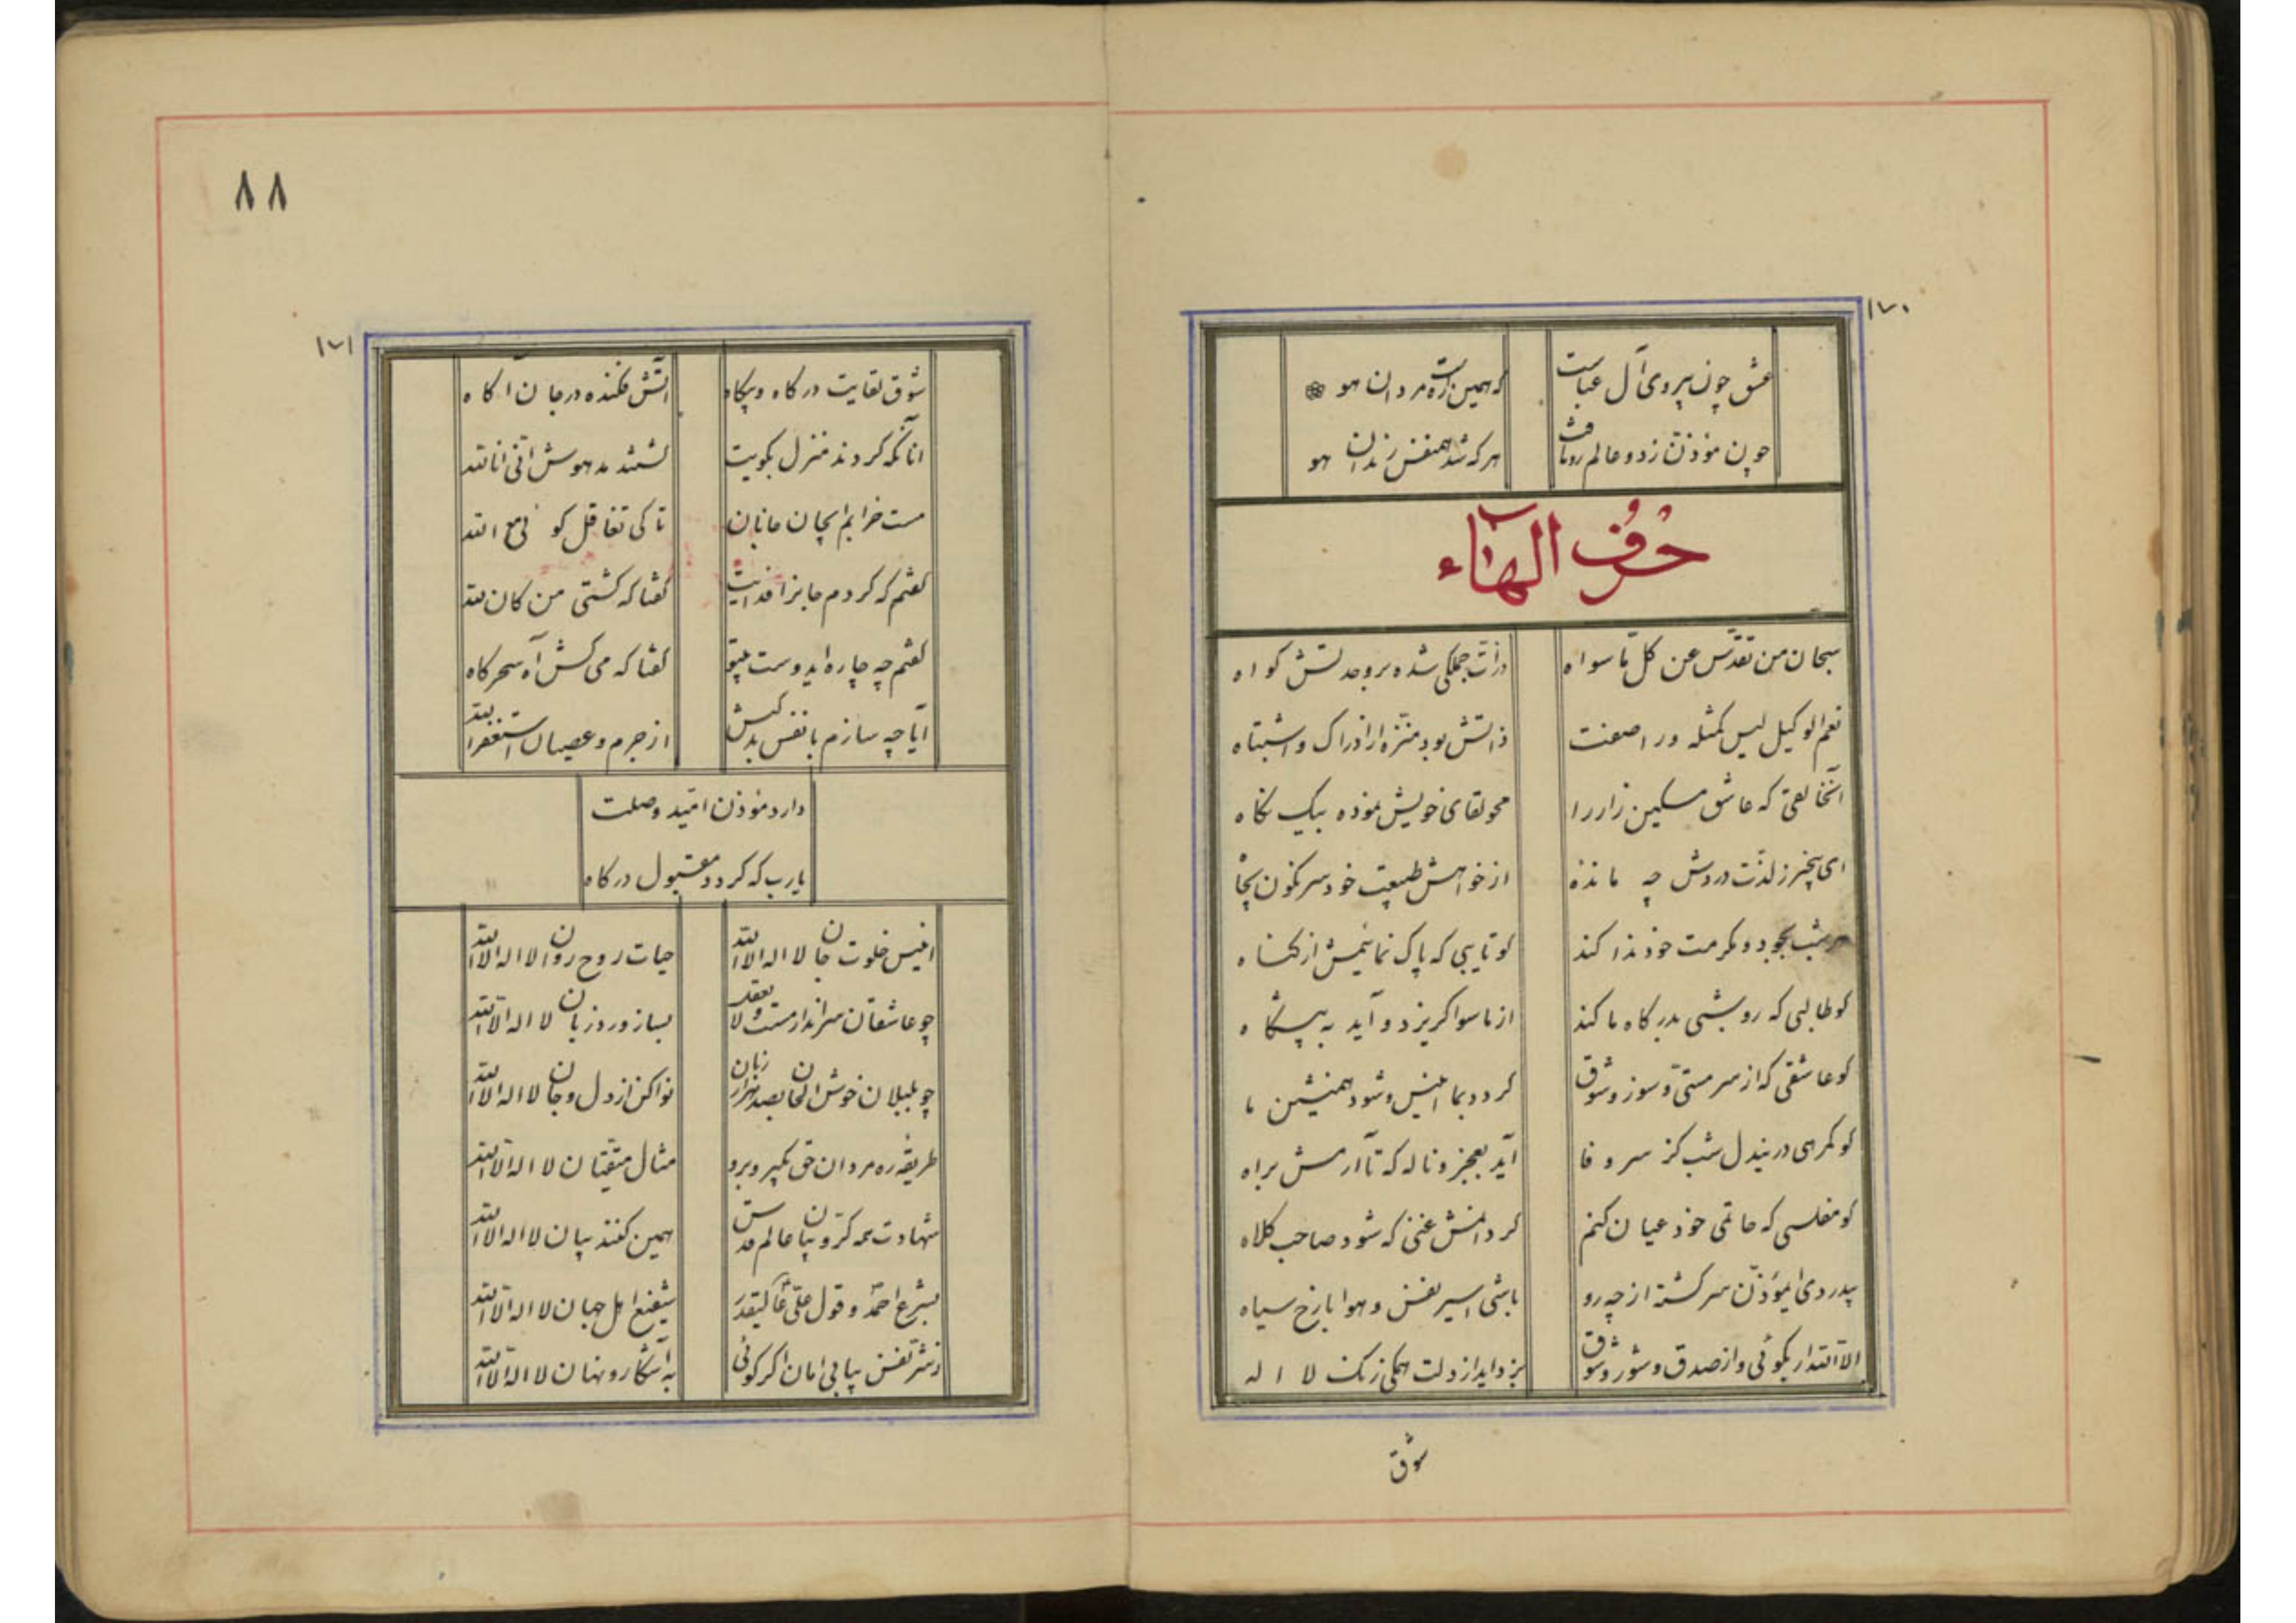 ۱۷۰
عشق چون پیروی آل عباست
که همین است ره مردان هو
چون مؤذن زد و عالم روفت
هر که شد همنفس رندان هو
حرف الهاء
سبحان من تقدس عن کل ما سواه
ذرات جملگی شده بر وحدتش کواه
نعم الوکیل لیس کمثله ورا صفت
ذاتش بود منزه از ادراک و اشتباه
آنخالقی که عاشق مسکین زار را
محو لقای خویش نموده بیک نکاه
ای بیخبر ز لذت دردش چه مانده
از خواهش طبیعت خود سرنکون بچاه
هر شب بجود و مکرمت خود ندا کند
کو تایبی که پاک نمائیمش از کناه
کو طالبی که رو بشبی بدرکاه ما کند
از ماسوا کریزد و آید به پیشکاه
کو عاشقی که از سر مستی و سوز و شوق
کردد بما انیس و شود همنشین ما
کو کمرهی در نیدل شب کز سر وفا
آید بعجز و ناله که تا آرمش براه
کو مفلسی که حاتمی خود عیان کنم
کردانمش غنی که شود صاحب کلاه
بیدردی ایمؤذن سرکشته از چه رو
باشی اسیر نفس و هوا با رخ سیاه
الا الله ار بکوئی و از صدق و شور و شوق
بزداید از دلت همکی زنک لا اله
شوق
۸۸
۱۷۱
شوق لقایت در کاه و بیکاه
آتش فکنده در جان آکاه
آنانکه کردند منزل بکویت
کشتند مدهوش انی انا الله
مست خرابم ایجان جانان
تا کی تغافل کو لی مع الله
کفتم که کردم جانرا فدایت
کفتا که کشتی من کان لله
کفتم چه چاره ایدوست بیتو
کفتا که می کش آه سحرکاه
آیا چه سازم با نفس بدکیش
از جرم و عصیان استغفرالله
دارد مؤذن امید وصلت
یارب که کردد مقبول درکاه
انیس خلوت جان لا اله الا الله
حیات روح روان لا اله الا الله
چو عاشقان سرانداز مست و لایعقل
بساز ورد زبان لا اله الا الله
چو بلبلان خوش الحان بصد هزار زبان
نوا کن از دل و جان لا اله الا الله
طریقه ره مردان حق بکیر و برو
مثال متقیان لا اله الا الله
شهادت همه کروبیان عالم قدس
همین کنند بیان لا اله الا الله
بشرع احمد و قول علی عالیقدر
شفیع اهل جهان لا اله الا الله
ز شر نفس بیابی امان اکر کوئی
به آشکار و نهان لا اله الا الله